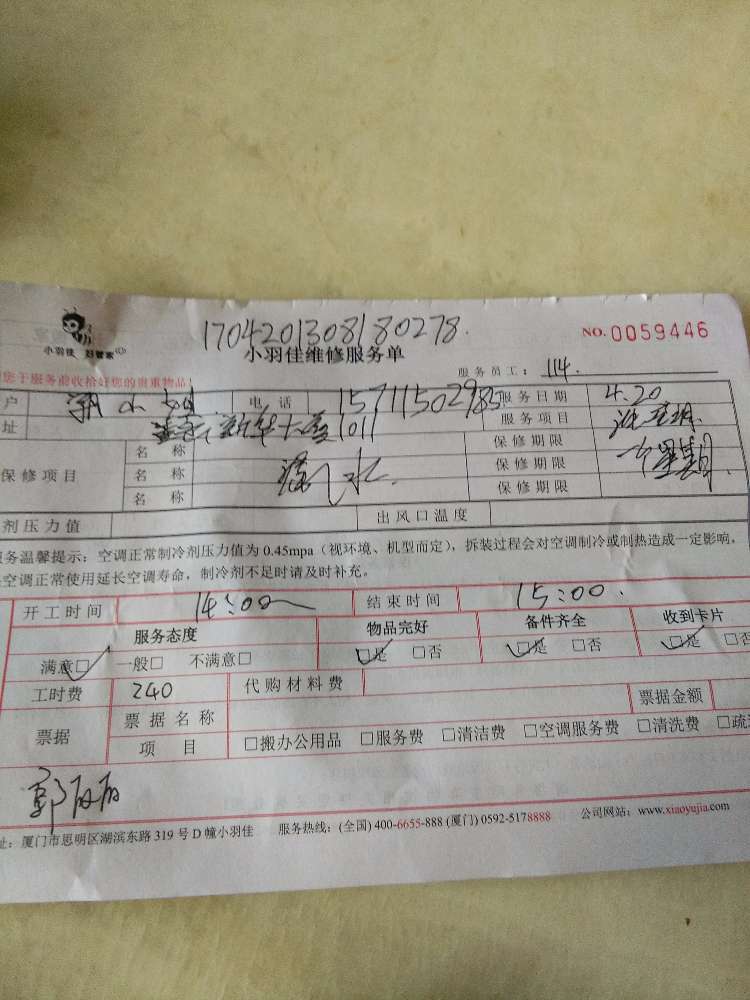 1704201308180278
小羽佳 好管家
小羽佳维修服务单
NO. 0059446
您于服务前收拾好您的贵重物品!
服务员工: 114.
户 小 电话 15711502985 服务日期 4.20
址 新华大厦1011 服务项目
保修项目 名称 保修期限 一个星期
名称 漏水 保修期限
名称 保修期限
剂压力值 出风口温度
务温馨提示: 空调正常制冷剂压力值为 0.45mpa (视环境、机型而定), 拆装过程会对空调制冷或制热造成一定影响,
空调正常使用延长空调寿命, 制冷剂不足时请及时补充。
开工时间 14:00 结束时间 15:00.
服务态度 物品完好 备件齐全 收到卡片
满意☑ 一般□ 不满意□ ☑是 □否 ☑是 □否 ☑是 □否
工时费 240 代购材料费 票据金额
票据 票据名称
项目 □搬办公用品 □服务费 □清洁费 □空调服务费 □清洗费 □疏
郭丽丽
址: 厦门市思明区湖滨东路 319 号 D 幢小羽佳 服务热线: (全国) 400-6655-888 (厦门) 0592-5178888 公司网站: www.xiaoyujia.com